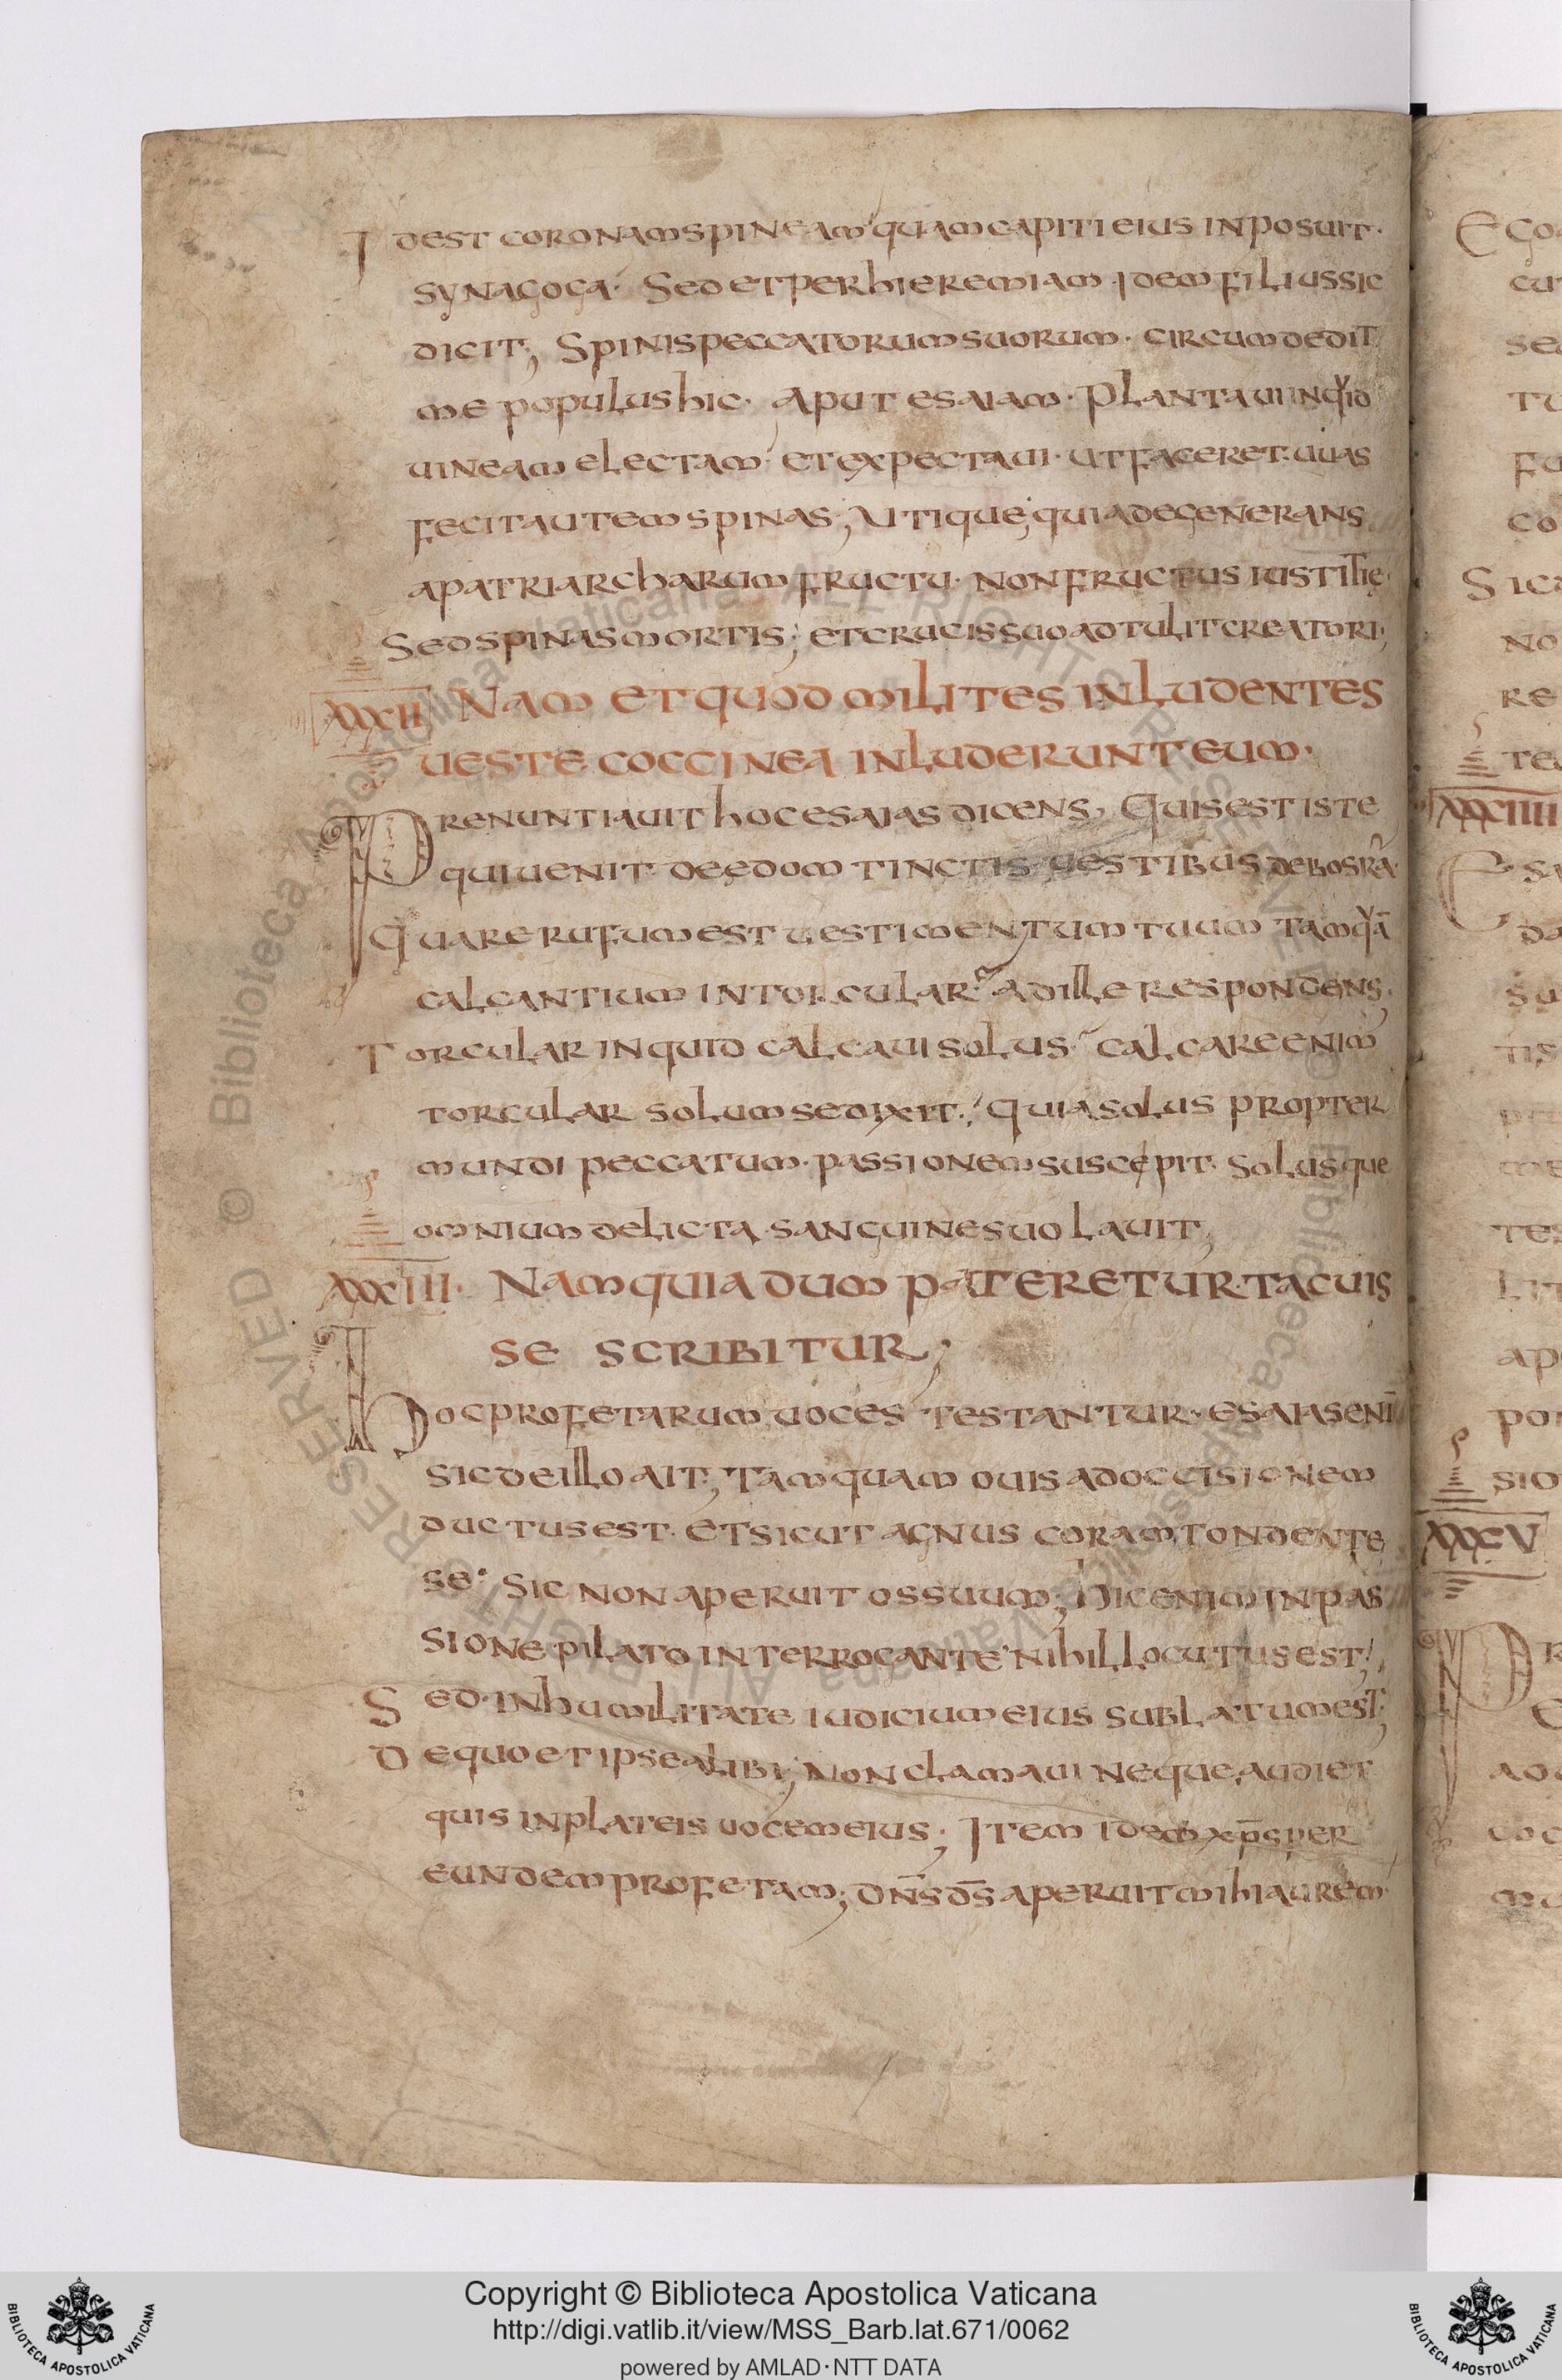 Idest coronam spineam quam capiti eius inposuit·
synagoga· Sed et per hieremiam idem filius sic
dicit; Spinis peccatorum suorum· circumdedit
me populus hic· Aput esaiam· Plantaui inquid
uineam electam· et expectaui· ut faceret uuas
fecit autem spinas; Utique quia degenerans
a patriarcharum fructu· non fructus iustitię·
Sed spinas mortis; et crucis suo adtulit creatori;
XXXII Nam et quod milites inludentes
ueste coccinea inluderunt eum·
Prenuntiauit hoc esaias dicens, Quis est iste
qui uenit de edom tinctis uestibus de bosra·
Quare rufum est uestimentum tuum tamquā
calcantium in torcular· ad ille respondens;
Torcular inquid calcaui solus· calcare enim
torcular solum se dixit·; quia solus propter
mundi peccatum· passionem suscepit· Solusque
omnium delicta sanguine suo lauit;
XXXIII· Nam quia dum pateretur· tacuis
se scribitur;
Hoc profetarum uoces testantur· esaias enī
sic de illo ait; Tamquam ouis ad occisionem
ductus est· et sicut agnus coram tondente
se· sic non aperuit os suum; Hic enim in pas
sione pilato interrogante nihil locutus est;
Sed in humilitate iudicium eius sublatum est;
De quo et ipse alibi; Non clamaui neque audiet
quis in plateis uocem eius; Item idem xp̄s per
eundem profetam; dn̄s d̄s aperuit mihi aurem·
Ego
cu
se
tu
fu
co
Sic
no
re
te
XXXIIII
Esa
da
su
tis
me
tes
lit
ap
po
sio
XXXV
Pr
ad
coc
mu
© Biblioteca Apostolica Vaticana ALL RIGHTS RESERVED © Biblioteca Apostolica Vaticana ALL RIGHTS RESERVED
BIBLIOTECA APOSTOLICA VATICANA
Copyright © Biblioteca Apostolica Vaticana
http://digi.vatlib.it/view/MSS_Barb.lat.671/0062
powered by AMLAD·NTT DATA
BIBLIOTECA APOSTOLICA VATICANA